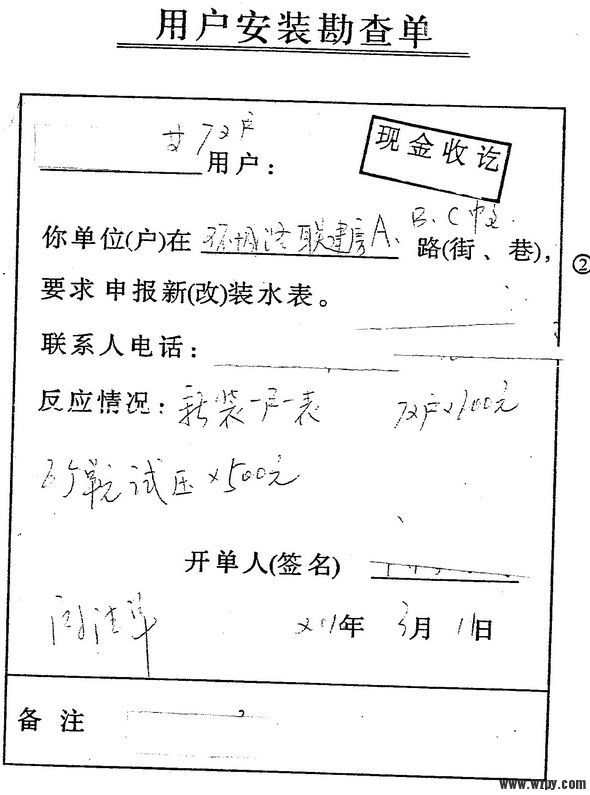 用户安装勘查单
共72户
用户：
现金收讫
你单位(户)在 环城路联建房A、B、C中 路(街、巷)，
②
要求申报新(改)装水表。
联系人电话：
反应情况：新装一户一表 72户×100元
个单元试压×500元
开单人(签名)
年 3月 11日
备注
www.wzpy.com